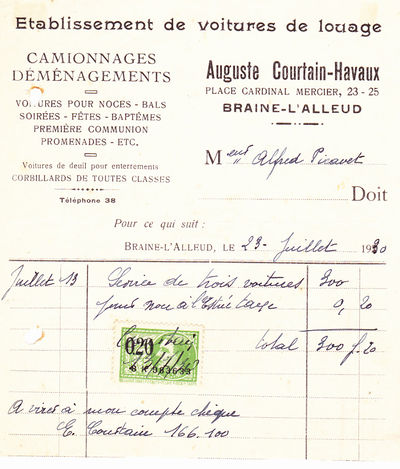 Etablissement de voitures de louage
CAMIONNAGES
DÉMÉNAGEMENTS
VOITURES POUR NOCES - BALS
SOIRÉES - FÊTES - BAPTÊMES
PREMIÈRE COMMUNION
PROMENADES - ETC.
Voitures de deuil pour enterrements
CORBILLARDS DE TOUTES CLASSES
Téléphone 38
Auguste Courtain-Havaux
PLACE CARDINAL MERCIER, 23 - 25
BRAINE-L'ALLEUD
M Alfred Picavet
Doit
Pour ce qui suit :
BRAINE-L'ALLEUD, LE 23 Juillet 1930
Juillet 13 Service de trois voitures 300
pour noce 0,20
total 300 f. 20
0.20
A virer à mon compte chèque
E. Courtain 166.100